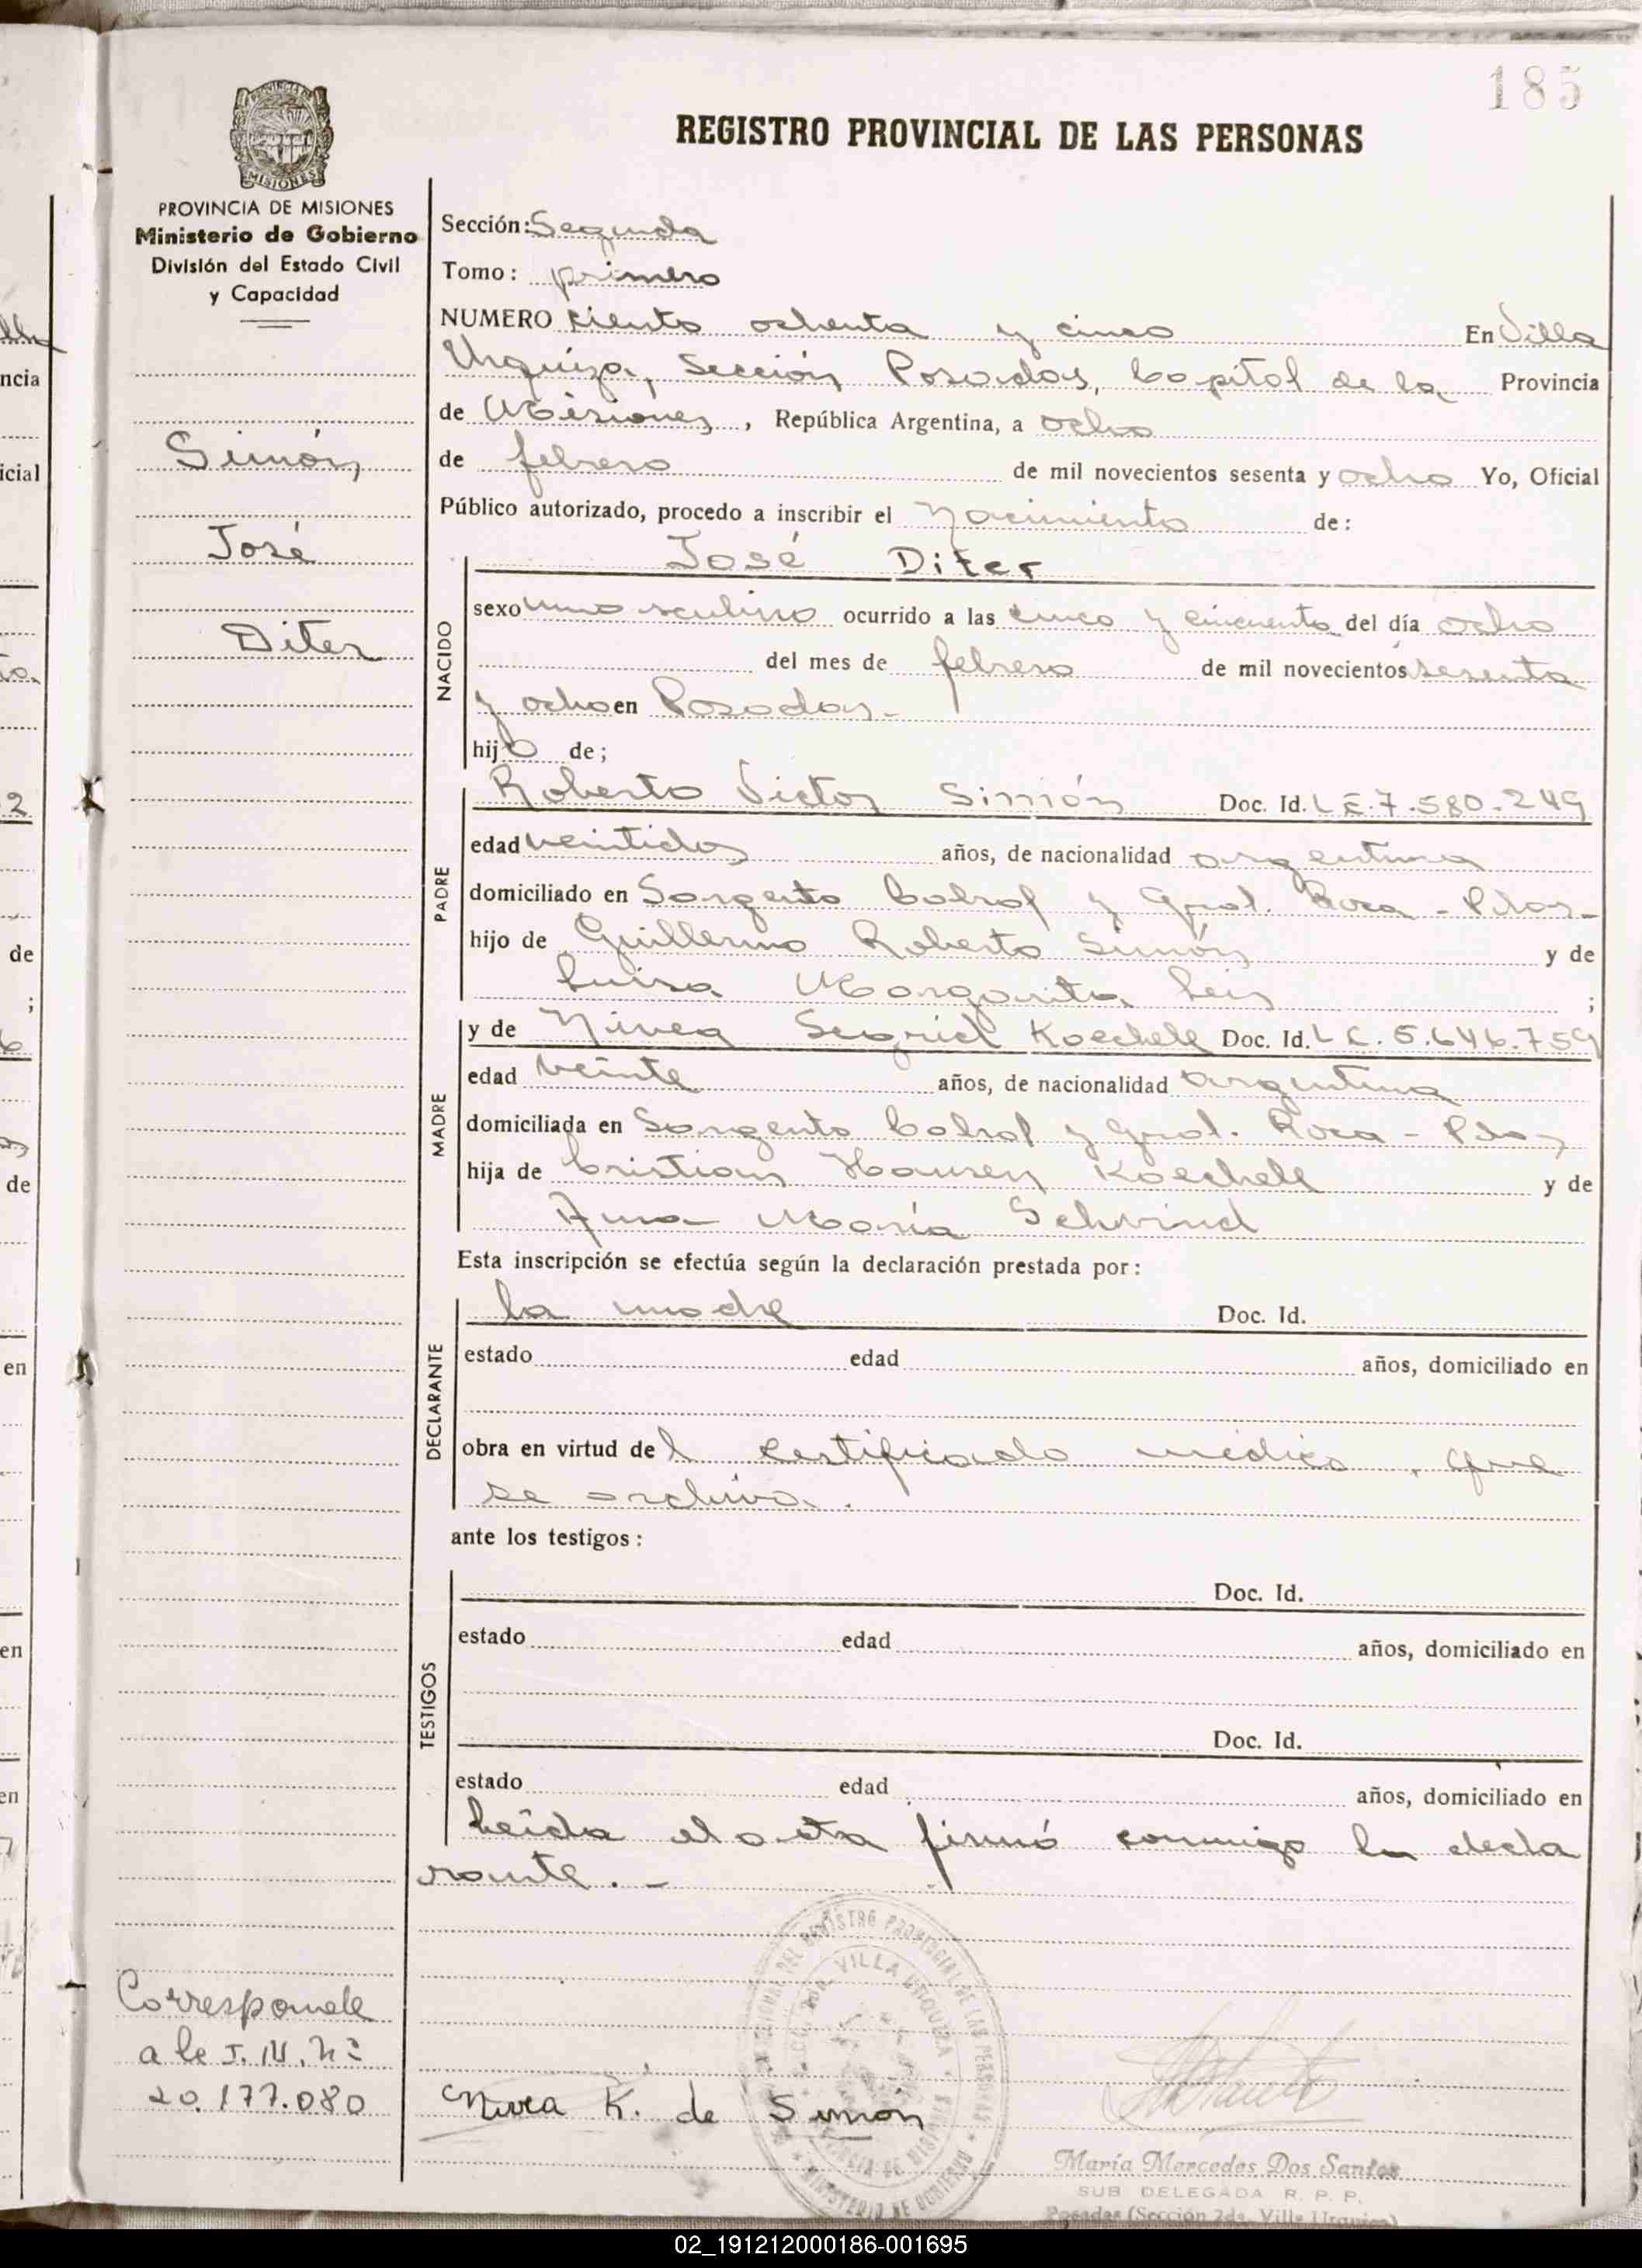 185
REGISTRO PROVINCIAL DE LAS PERSONAS
MISIONES
PROVINCIA DE MISIONES
Ministerio de Gobierno
División del Estado Civil
y Capacidad
Simón
José
Diter
Corresponde
a le I. M. Nº
20.177.080
Sección: Segunda
Tomo: primero
NUMERO ciento ochenta y cinco En Villa
Urquiza, Sección Posadas, Capital de la Provincia
de Misiones, República Argentina, a ocho
de febrero de mil novecientos sesenta y ocho Yo, Oficial
Público autorizado, procedo a inscribir el Nacimiento de:
José Diter
NACIDO
sexo masculino ocurrido a las cinco y cincuenta del día ocho
del mes de febrero de mil novecientos sesenta
y ocho en Posadas.-
hijo de;
PADRE
Roberto Victor Simón Doc. Id. L E. 7.580.249
edad veintidos años, de nacionalidad argentina
domiciliado en Sargento Cabral y Gral. Roca - Pdas-
hijo de Guillermo Roberto Simón y de
Luisa Margarita Leis ;
MADRE
y de Nivea Segrid Koechell Doc. Id. L C. 5.646.759
edad veinte años, de nacionalidad argentina
domiciliada en Sargento Cabral y Gral. Roca - Pdas
hija de Cristian Hansen Koechell y de
Ana María Schwind
Esta inscripción se efectúa según la declaración prestada por:
DECLARANTE
la madre Doc. Id.
estado edad años, domiciliado en
obra en virtud del certificado médico, que
se archiva.
ante los testigos:
TESTIGOS
Doc. Id.
estado edad años, domiciliado en
Doc. Id.
estado edad años, domiciliado en
Leída el acta firmó conmigo la decla
rante.-
Nivea K. de Simón
VILLA URQUIZA
MINISTERIO DE GOBIERNO
María Mercedes Dos Santos
SUB DELEGADA R. P. P.
Posadas (Sección 2da. Villa Urquiza)
ncia
icial
2
de
;
de
en
en
en
02_191212000186-001695